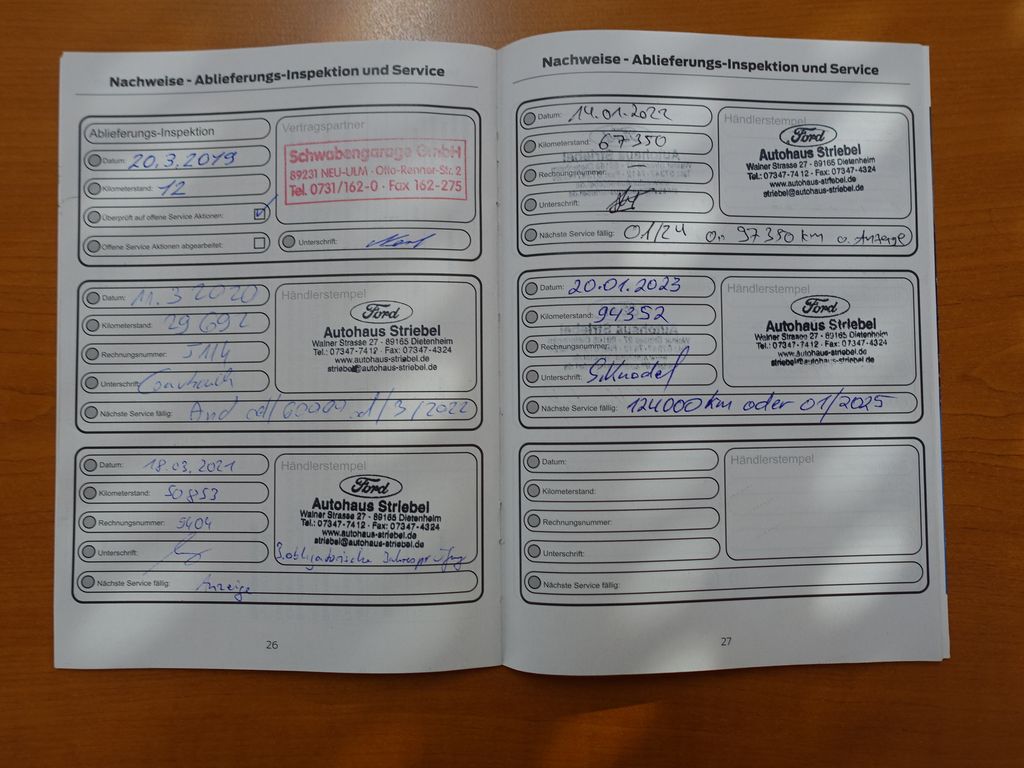 Nachweise - Ablieferungs-Inspektion und Service
Ablieferungs-Inspektion
Datum: 20.3.2019
Kilometerstand: 12
Überprüft auf offene Service Aktionen:
Offene Service Aktionen abgearbeitet:
Vertragspartner
Schwabengarage GmbH
89231 NEU-ULM · Otto-Renner-Str. 2
Tel. 0731/162-0 · Fax 162-275
Unterschrift:
Datum: 11.3 2020
Kilometerstand: 29692
Rechnungsnummer: 5114
Unterschrift:
Händlerstempel
Ford
Autohaus Striebel
Wainer Strasse 27 · 89165 Dietenheim
Tel.: 07347-7412 · Fax: 07347-4324
www.autohaus-striebel.de
striebel@autohaus-striebel.de
Nächste Service fällig: 60000 /3/2022
Datum: 18.03.2021
Kilometerstand: 50853
Rechnungsnummer: 5404
Unterschrift:
Händlerstempel
Ford
Autohaus Striebel
Wainer Strasse 27 · 89165 Dietenheim
Tel.: 07347-7412 · Fax: 07347-4324
www.autohaus-striebel.de
striebel@autohaus-striebel.de
obligatorische Jahresprüfung
Nächste Service fällig: Anzeige
26
Nachweise - Ablieferungs-Inspektion und Service
Datum: 14.01.2022
Kilometerstand: 67350
Rechnungsnummer: -
Unterschrift:
Händlerstempel
Ford
Autohaus Striebel
Wainer Strasse 27 · 89165 Dietenheim
Tel.: 07347-7412 · Fax: 07347-4324
www.autohaus-striebel.de
striebel@autohaus-striebel.de
Nächste Service fällig: 01/24 97350 km o. Anzeige
Datum: 20.01.2023
Kilometerstand: 94352
Rechnungsnummer:
Unterschrift: S. Knodel
Händlerstempel
Ford
Autohaus Striebel
Wainer Strasse 27 · 89165 Dietenheim
Tel.: 07347-7412 · Fax: 07347-4324
www.autohaus-striebel.de
striebel@autohaus-striebel.de
Nächste Service fällig: 124000 km oder 01/2025
Datum:
Kilometerstand:
Rechnungsnummer:
Unterschrift:
Händlerstempel
Nächste Service fällig:
27